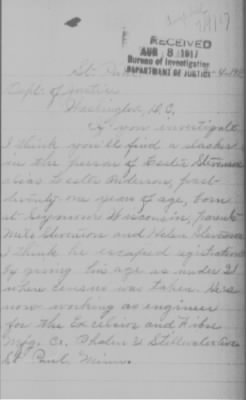 RECEIVED
AUG 8 1917
Bureau of Investigation
DEPARTMENT OF JUSTICE
St. Paul
Dept. of Justice
Washington, D.C.
If you investigate
I think you'll find a slacker
in the person of Lester Stevenson
alias Lester Anderson, past
twenty-one years of age, born
at Seymour Wisconsin, parents
Mike Stevenson and Helen Stevenson
I think he escaped registration
by giving his age as under 21
when census was taken. He is
now working as engineer
for the Excelsior and Fibre
Mfg. Co. Phalen & Stillwater
St. Paul Minn.